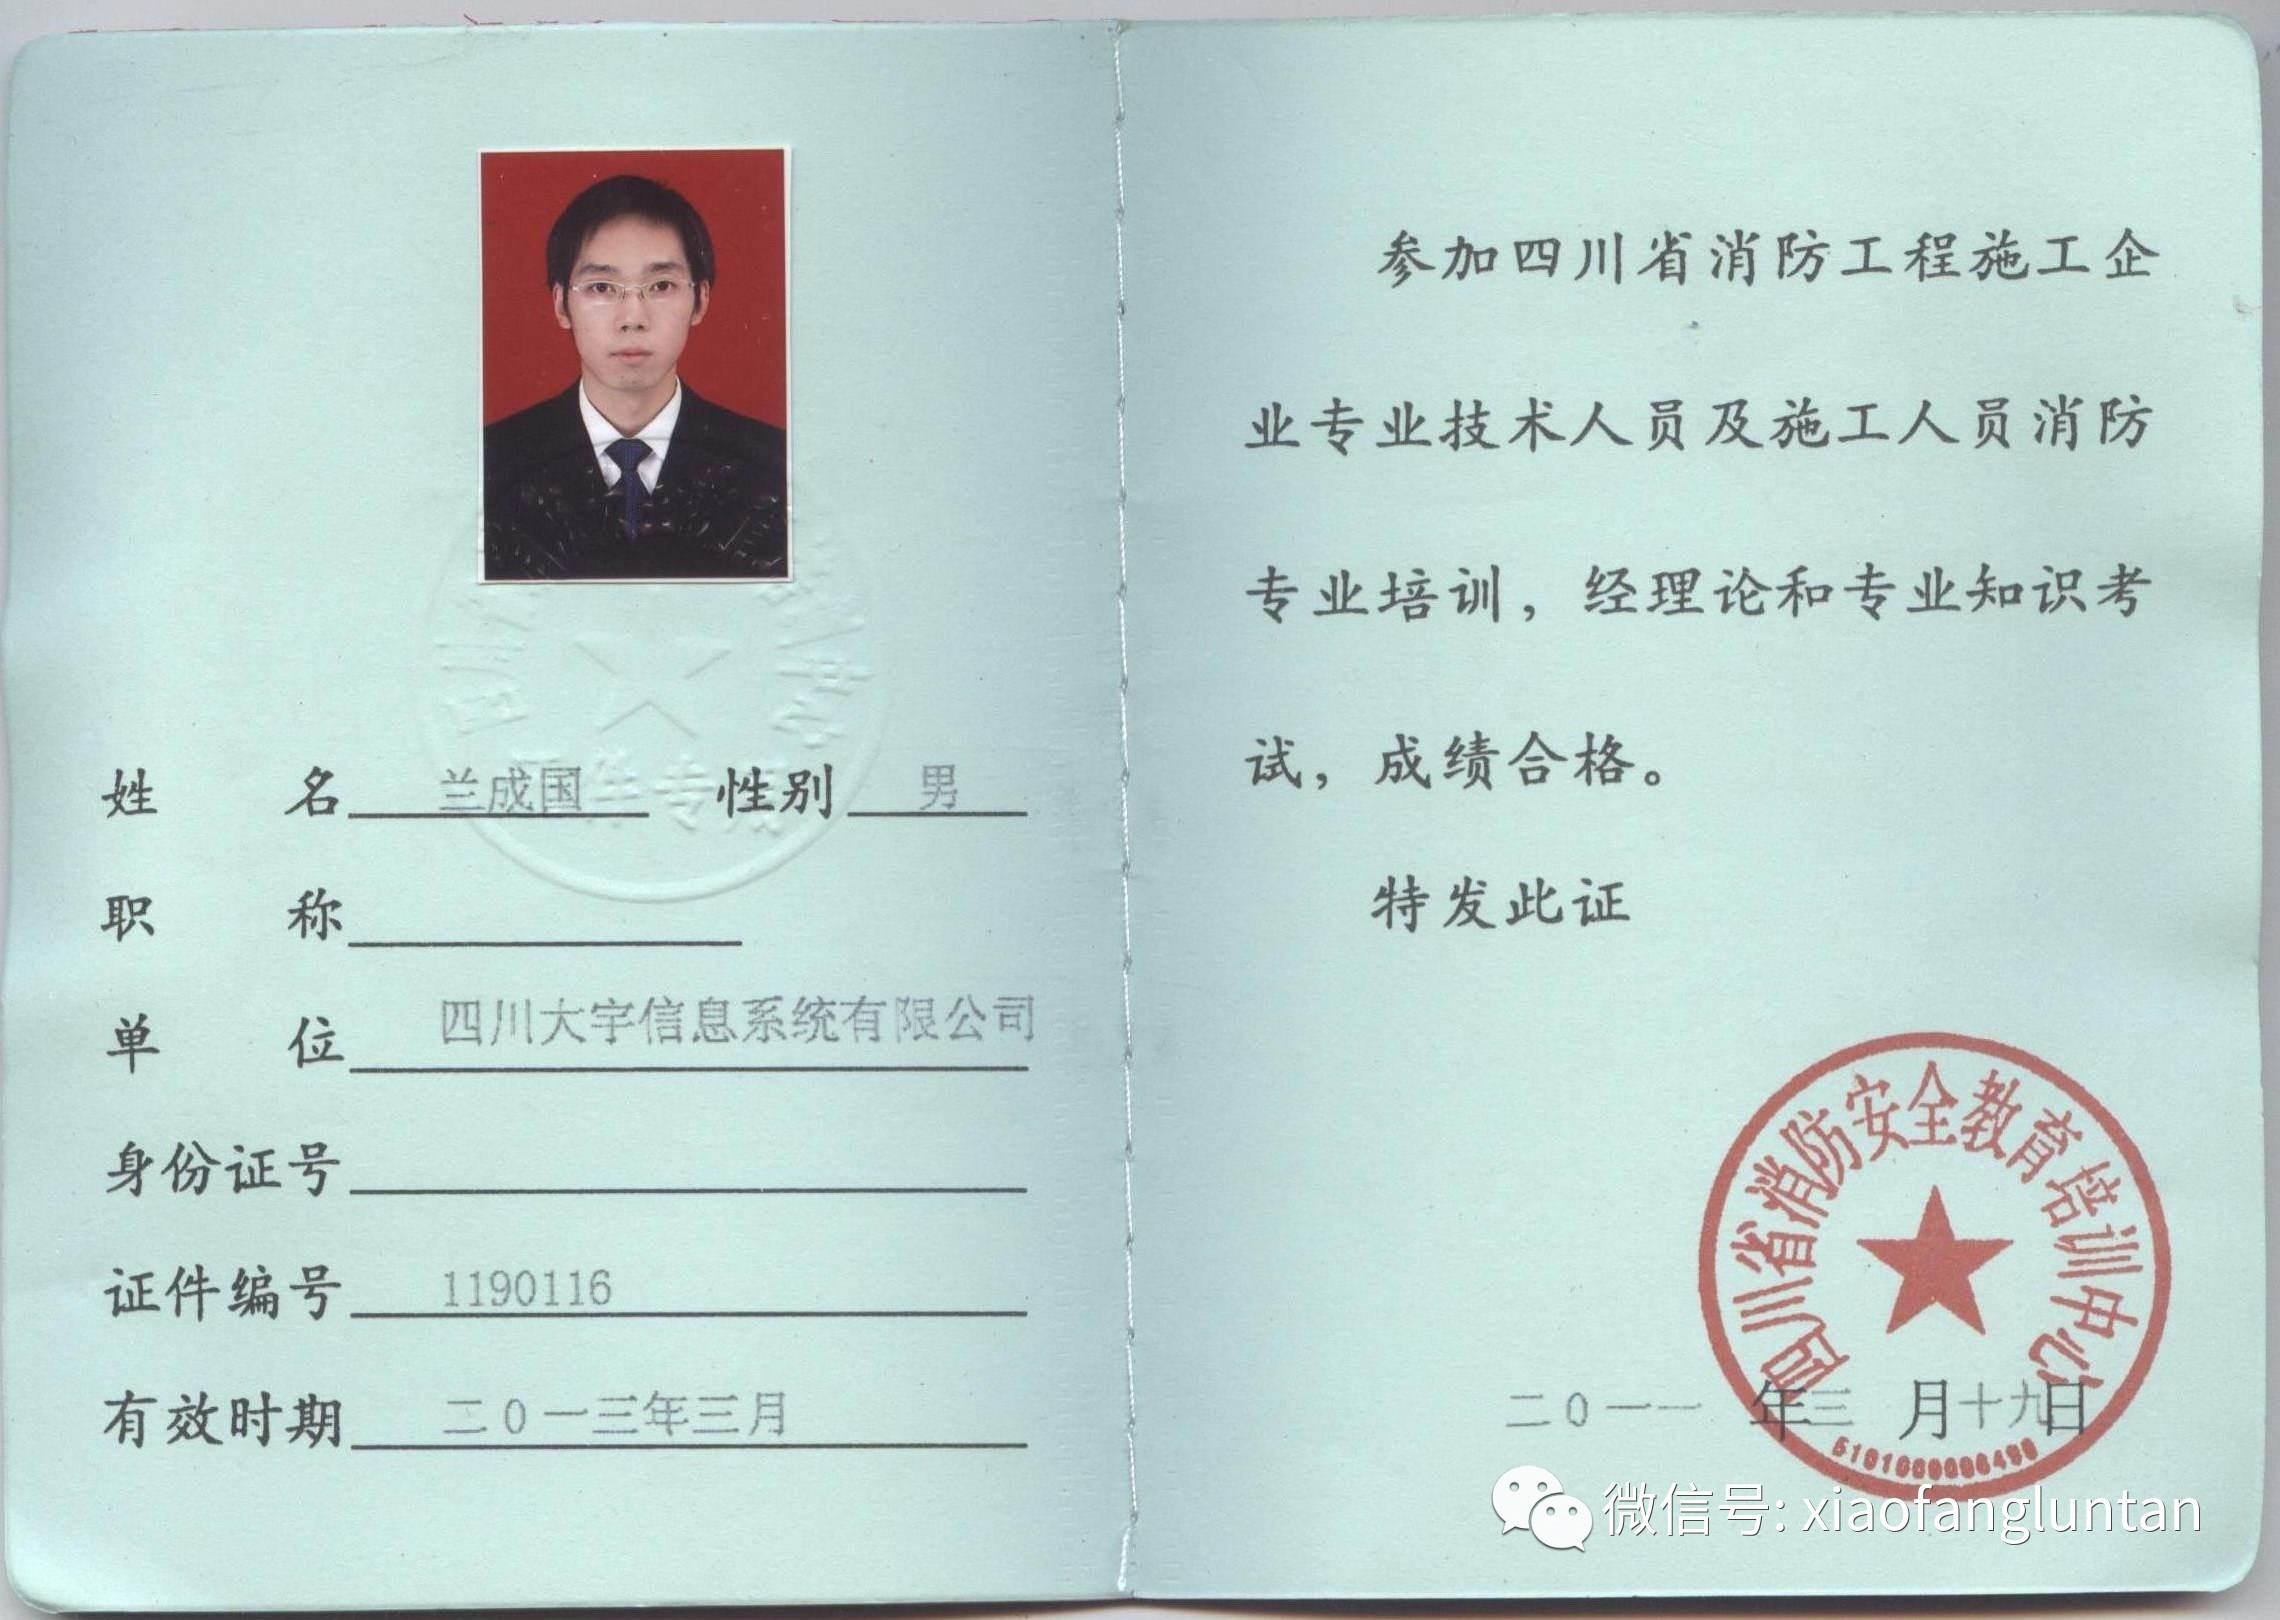 姓名 兰成国 性别 男
职称
单位 四川大宇信息系统有限公司
身份证号
证件编号 1190116
有效时期 二0一三年三月
参加四川省消防工程施工企
业专业技术人员及施工人员消防
专业培训，经理论和专业知识考
试，成绩合格。
特发此证
四川省消防安全教育培训中心
二0一一年三月十九日
微信号: xiaofangluntan